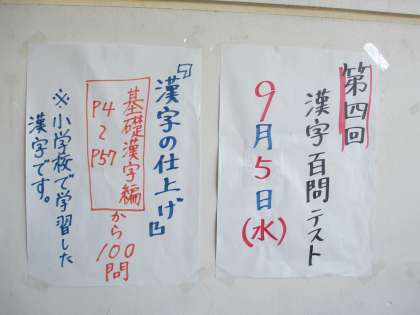 第四回
漢字百問テスト
9月5日(水)
『漢字の仕上げ』
基礎漢字編 から100問
P4~P57
※小学校で学習した
漢字です。